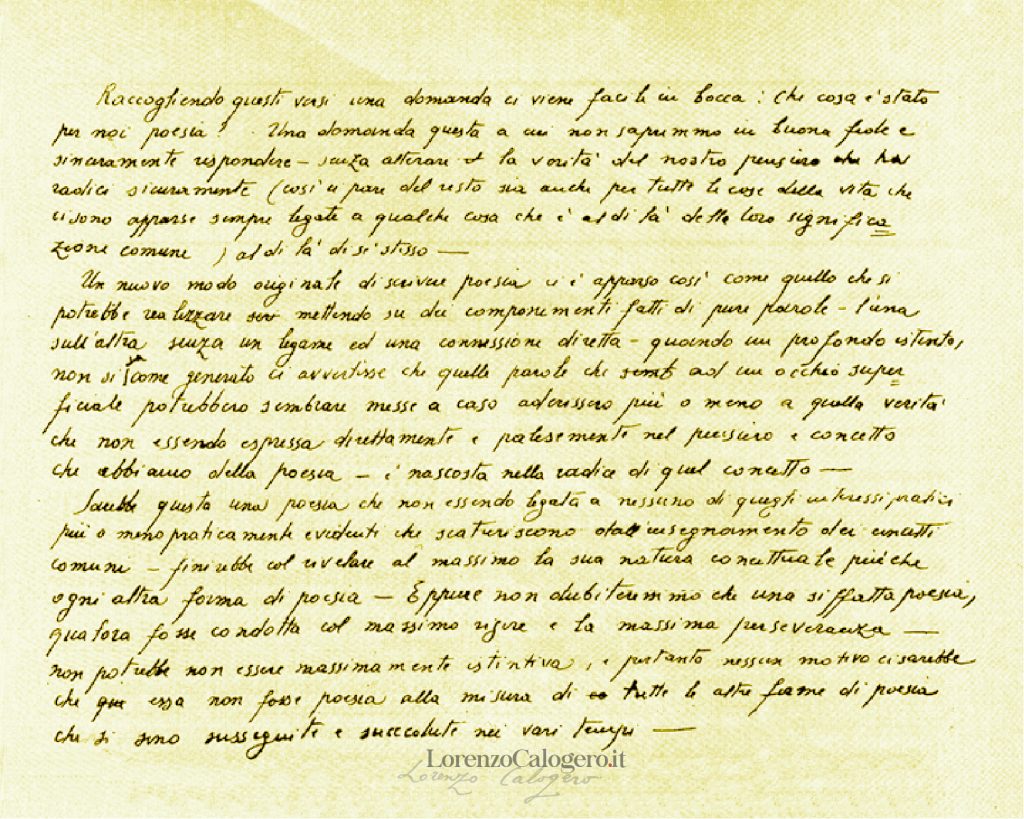 Raccogliendo questi versi una domanda ci viene facile in bocca: Che cosa è stato
per noi poesia? Una domanda questa a cui non sapremmo in buona fede e
sinceramente rispondere – senza alterare la verità del nostro pensiero che ha
radici sicuramente (così ci pare del resto sia anche per tutte le cose della vita che
ci sono apparse sempre legate a qualche cosa che è al di là della loro significa
zione comune) al di là di sé stesso —
Un nuovo modo originale di scrivere poesia ci è apparso così come quello che si
potrebbe realizzare mettendo su dei componimenti fatti di pure parole – l'una
sull'altra senza un legame ed una connessione diretta – quando un profondo istinto,
non si come generato ci avvertisse che quelle parole che ad un occhio super
ficiale potrebbero sembrare messe a caso aderissero più o meno a quella verità
che non essendo espressa direttamente e palesemente nel pensiero e concetto
che abbiamo della poesia – è nascosta nella radice di quel concetto —
Sarebbe questa una poesia che non essendo legata a nessuno di questi interessi pratici
più o meno praticamente evidenti che scaturiscono dall'insegnamento dei concetti
comuni – finirebbe col rivelare al massimo la sua natura concettuale più che
ogni altra forma di poesia – Eppure non dubiteremmo che una siffatta poesia,
qualora fosse condotta col massimo rigore e la massima perseveranza —
non potrebbe non essere massimamente istintiva, e pertanto nessun motivo ci sarebbe
che essa non fosse poesia alla misura di tutte le altre forme di poesia
che si sono susseguite e succedute nei vari tempi —
LorenzoCalogero.it
Lorenzo Calogero